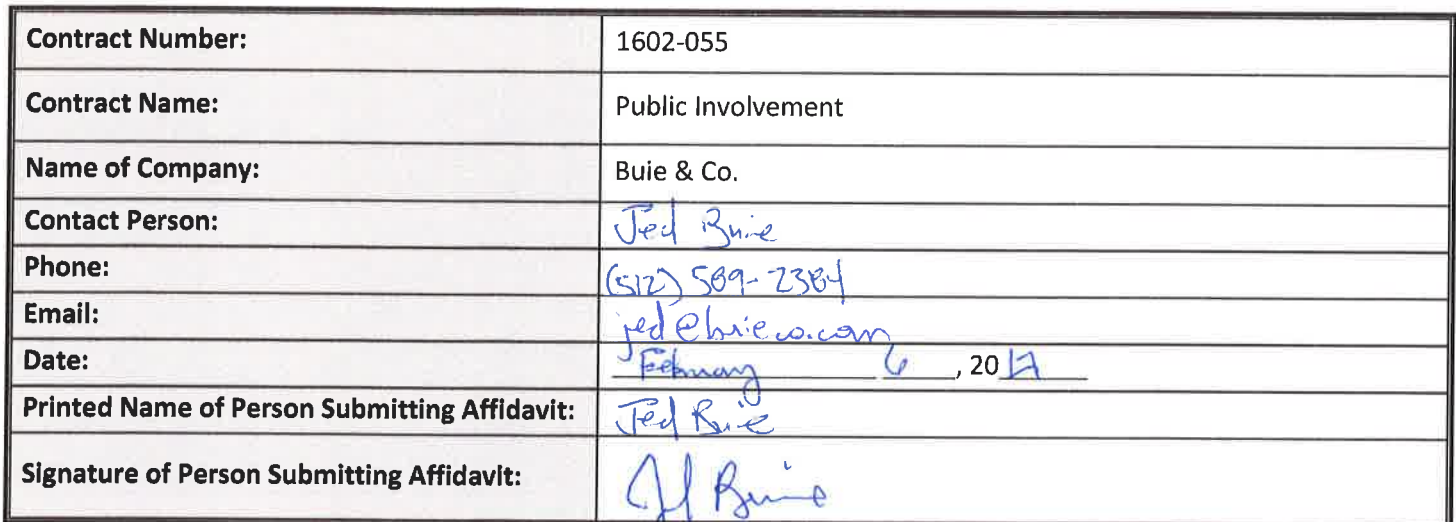 Contract Number: 1602-055
Contract Name: Public Involvement
Name of Company: Buie & Co.
Contact Person: Jed Buie
Phone: (512) 589-2384
Email: jed@buieco.com
Date: February 6, 2017
Printed Name of Person Submitting Affidavit: Jed Buie
Signature of Person Submitting Affidavit: Jed Buie